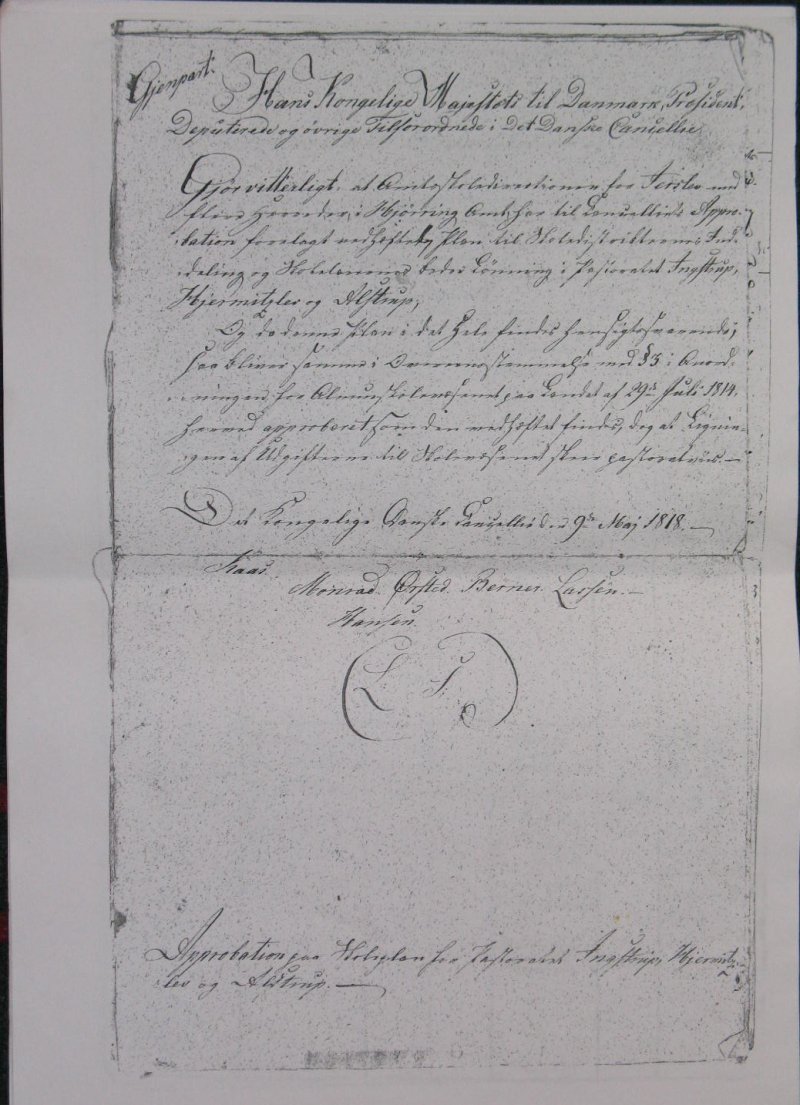 Gjenpart.
Hans Kongelige Majestets til Danmark, Præsident,
Deputerede og øvrige Tilforordnede i Det Danske Cancellie
Gjør vitterligt: at Amtsskoledirectionen for Jerslev med
flere Herreder i Hjørring Amt, har til Cancelliets Appro-
bation forelagt vedhæftede Plan til Skoledistrikternes Ind-
deling og Skolelærernes Lønning i Pastoratet Ingstrup,
Hjermitzlev og Alstrup;
Og da denne Plan i det Hele findes hensigtssvarende,
saa bliver samme i Overeensstemmelse med § 3 i Anord-
ningen for Almueskolevæsenet paa Landet af 29de Juli 1814.
herved approberet som den vedhæftet findes, dog at Lignin-
gen af Udgifterne til Skolevæsenet skeer pastoratviis.—
Det Kongelige Danske Cancellie den 9de Maj 1818.—
Kaas.
Monrad. Ørsted. Berner. Lassen.—
Hansen.
L S
Approbation paa Skoleplan for Pastoratet Ingstrup, Hjermitz-
lev og Alstrup.—